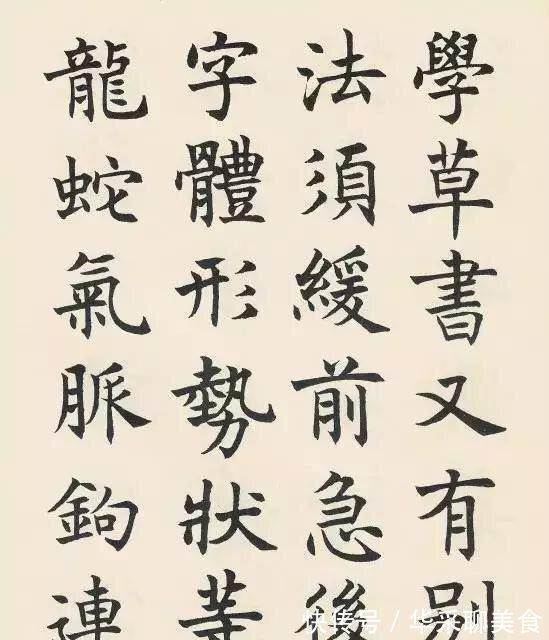 學草書又有別
法須緩前急後
字體形勢狀等
龍蛇氣脈鉤連
快传号/华采聊美食